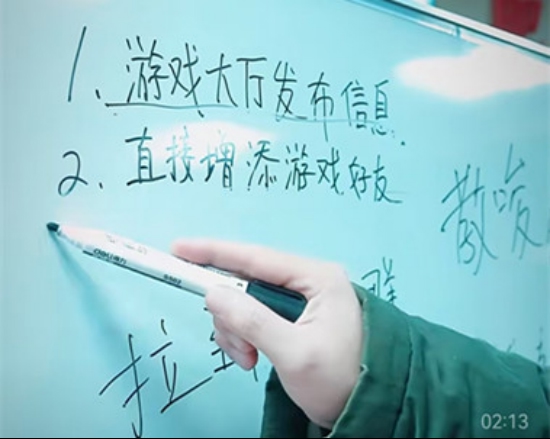 1、游戏大厅发布信息.
2、直接增添游戏好友
群
拉
02:13